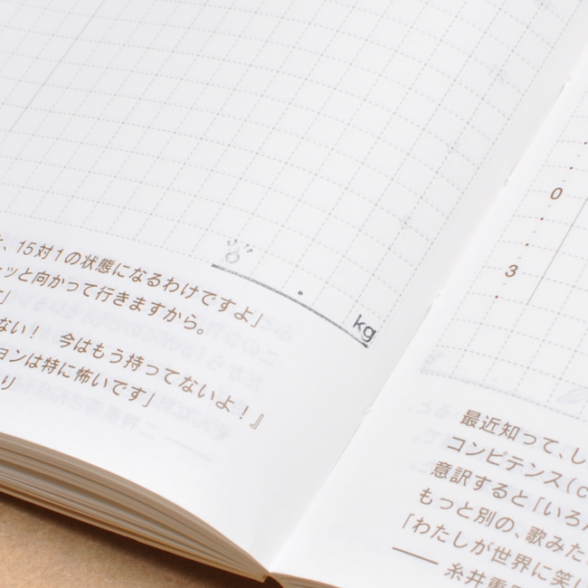 、15対1の状態になるわけですよ」
ッと向かって行きますから。
」
ない！ 今はもう持ってないよ！』
ョンは特に怖いです」
り
kg
0
3
最近知って、し
コンピテンス（
意訳すると「いろ
もっと別の、歌みた
「わたしが世界に笑
── 糸井